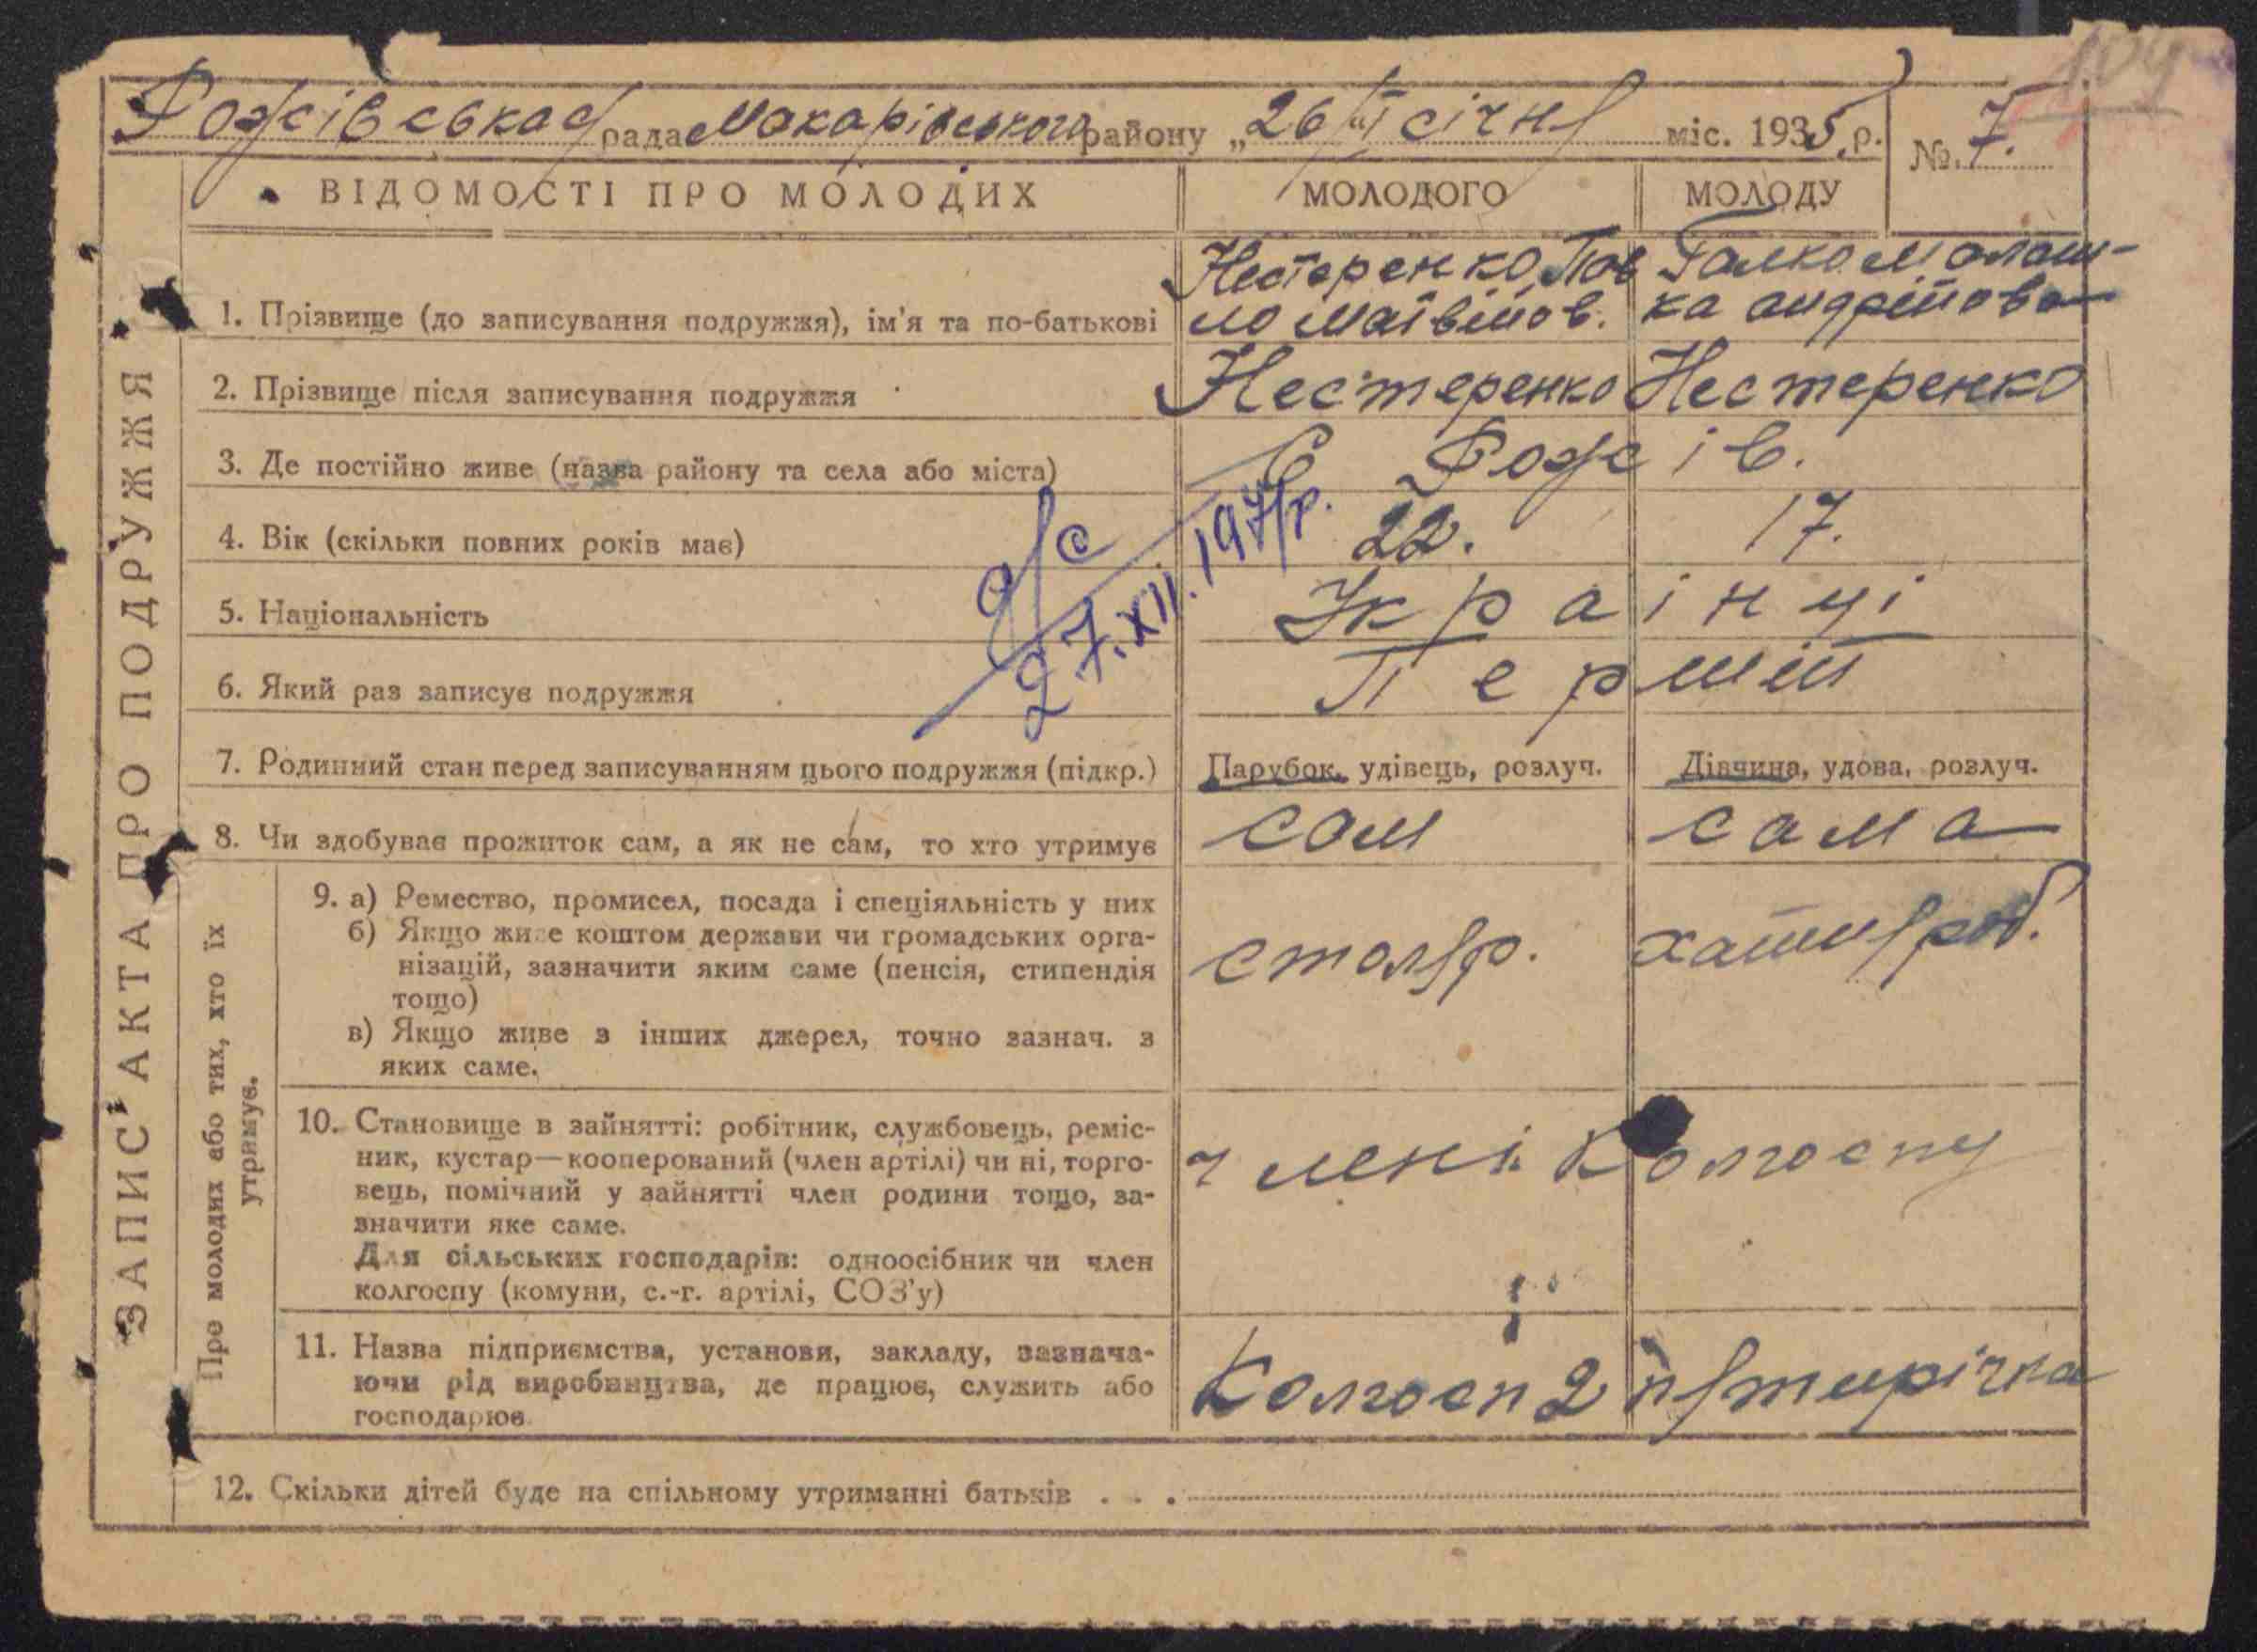 104
Рожівська рада Макарівського району „26" січня міс. 1935 р. № 7.
ЗАПИС АКТА ПРО ПОДРУЖЖЯ
ВІДОМОСТІ ПРО МОЛОДИХ МОЛОДОГО МОЛОДУ
Нестеренко Пав Галко Малаш-
1. Прізвище (до записування подружжя), ім'я та по-батькові ло Матвійов. ка Андрійова
2. Прізвище після записування подружжя Нестеренко Нестеренко
3. Де постійно живе (назва району та села або міста) С Рожів.
4. Вік (скільки повних років має) 22. 17.
д/с
27.XII.1971р.
5. Національність Українці
6. Який раз записує подружжя Перший
7. Родинний стан перед записуванням цього подружжя (підкр.) Парубок, удівець, розлуч. Дівчина, удова, розлуч.
8. Чи здобуває прожиток сам, а як не сам, то хто утримує сам сама
Про молодих або тих, хто їх
утримує.
9. а) Ремество, промисел, посада і спеціяльність у них
б) Якщо живе коштом держави чи громадських орга-
нізацій, зазначити яким саме (пенсія, стипендія столяр. хатняроб.
тощо)
в) Якщо живе з інших джерел, точно зазнач. з
яких саме.
10. Становище в зайнятті: робітник, службовець, реміс-
ник, кустар—кооперований (член артілі) чи ні, торго- члені колгоспу
вець, помічний у зайнятті член родини тощо, за-
значити яке саме.
Для сільських господарів: одноосібник чи член
колгоспу (комуни, с.-г. артілі, СОЗ'у)
11. Назва підприємства, установи, закладу, зазнача-
ючи рід виробництва, де працює, служить або Колгосп 2 пятирічка
господарює
12. Скільки дітей буде на спільному утриманні батьків . . .